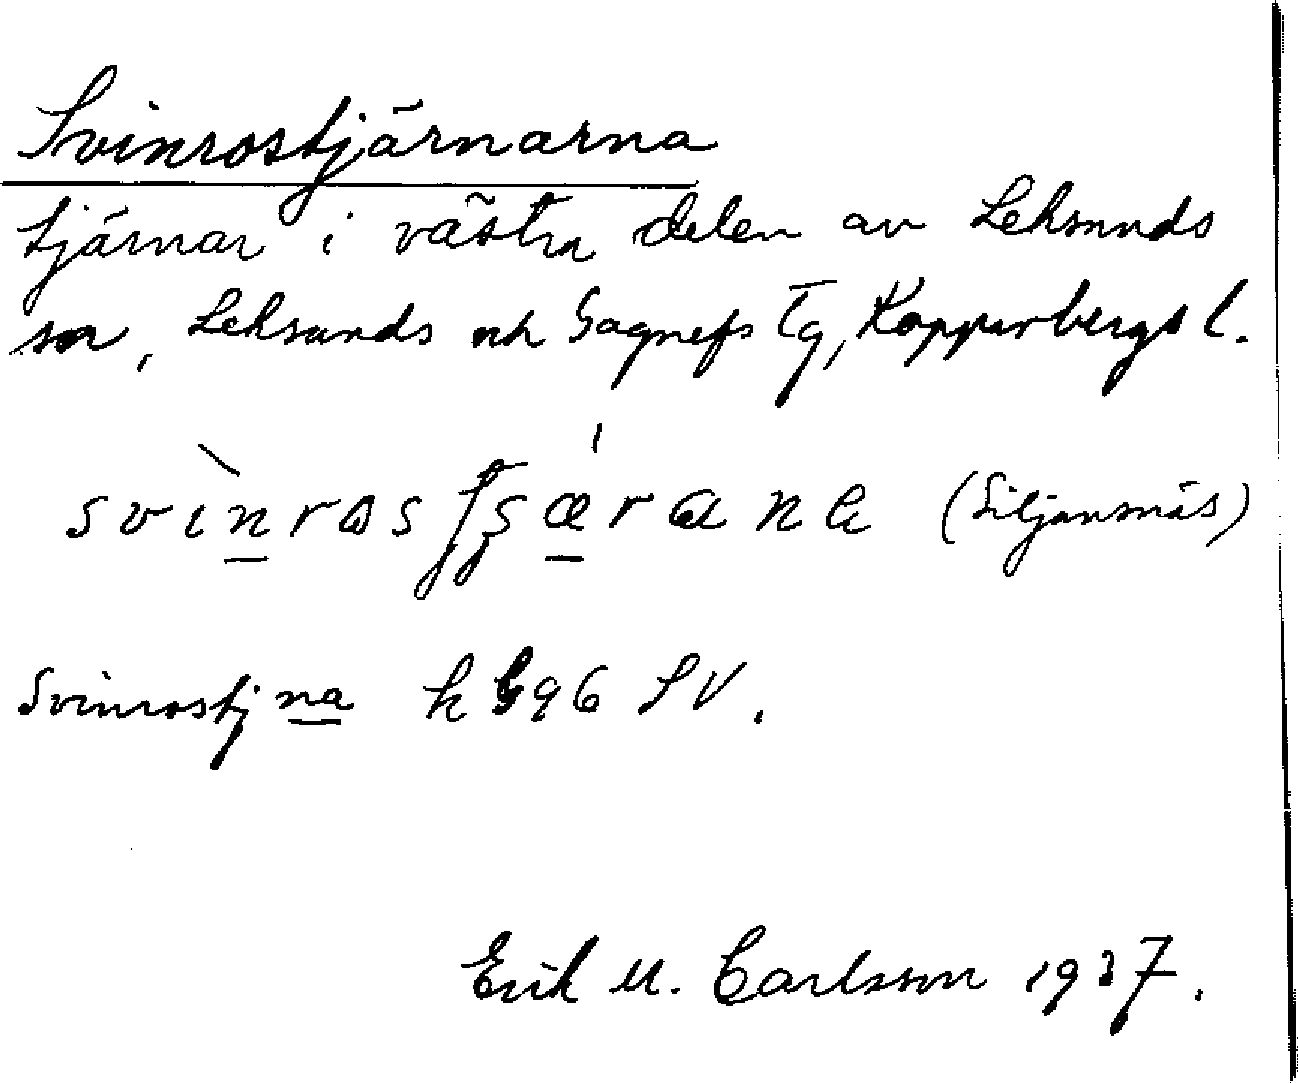 Svinrostjärnarna
tjärnar i västra delen av Leksands
sn, Leksands och Gagnefs Tg, Kopparbergs l.
(Siljansnäs)
Svinrostjna k G96 SV.
Erik M. Carlsson 1937.